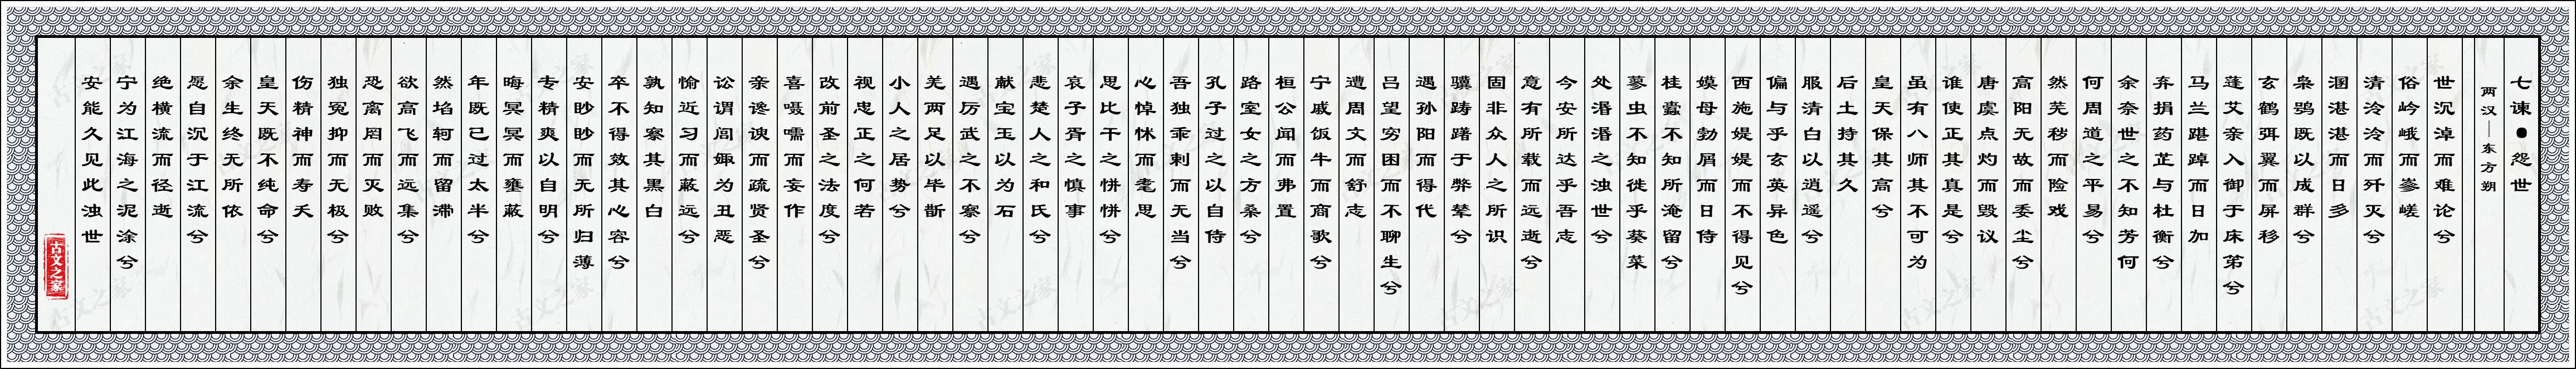 七谏●怨世
两汉—东方朔
世沉淖而难论兮
俗岒峨而嵾嵯
清泠泠而歼灭兮
溷湛湛而日多
枭鸮既以成群兮
玄鹤弭翼而屏移
蓬艾亲入御于床笫兮
马兰踸踔而日加
弃捐药芷与杜衡兮
余奈世之不知芳何
何周道之平易兮
然芜秽而险戏
高阳无故而委尘兮
唐虞点灼而毁议
谁使正其真是兮
虽有八师其不可为
皇天保其高兮
后土持其久
服清白以逍遥兮
偏与乎玄英异色
西施媞媞而不得见兮
嫫母勃屑而日侍
桂蠹不知所淹留兮
蓼虫不知徙乎葵菜
处涽涽之浊世兮
今安所达乎吾志
意有所载而远逝兮
固非众人之所识
骥踌躇于弊辇兮
遇孙阳而得代
吕望穷困而不聊生兮
遭周文而舒志
宁戚饭牛而商歌兮
桓公闻而弗置
路室女之方桑兮
孔子过之以自侍
吾独乖剌而无当兮
心悼怵而耄思
思比干之恲恲兮
哀子胥之慎事
悲楚人之和氏兮
献宝玉以为石
遇厉武之不察兮
羌两足以毕斮
小人之居势兮
视忠正之何若
改前圣之法度兮
喜嗫嚅而妄作
亲谗谀而疏贤圣兮
讼谓闾娵为丑恶
愉近习而蔽远兮
孰知察其黑白
卒不得效其心容兮
安眇眇而无所归薄
专精爽以自明兮
晦冥冥而壅蔽
年既已过太半兮
然埳轲而留滞
欲高飞而远集兮
恐离罔而灭败
独冤抑而无极兮
伤精神而寿夭
皇天既不纯命兮
余生终无所依
愿自沉于江流兮
绝横流而径逝
宁为江海之泥涂兮
安能久见此浊世
古文之家